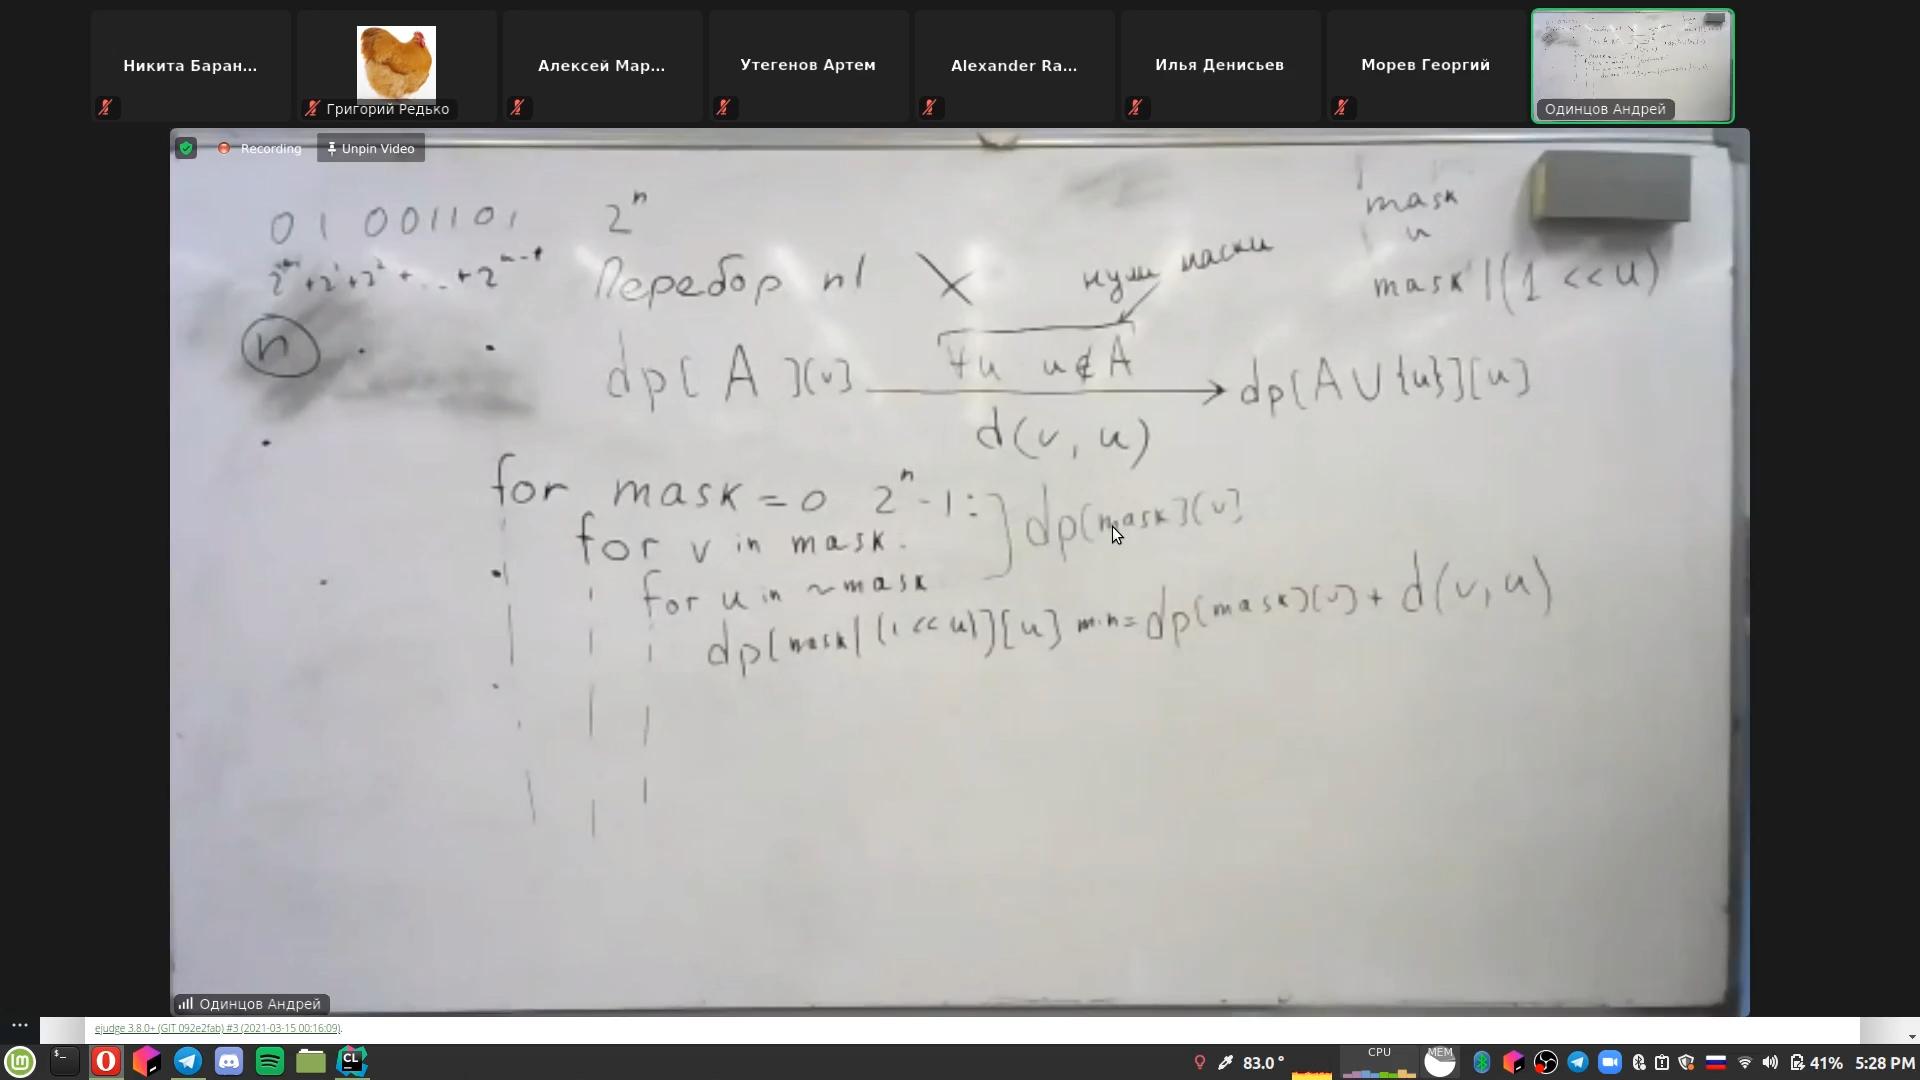 Никита Баран...
Григорий Редько
Алексей Мар...
Утегенов Артем
Alexander Ra...
Илья Денисьев
Морев Георгий
Одинцов Андрей
Recording
Unpin Video
0 1 001101 2^n
mask
u
mask | (1 << u)
Перебор n!
нули маски
n
dp[ A ][v] ∀u u∉A dp[A∪{u}][u]
d(v, u)
for mask = 0 2^n-1: dp[mask][v]
for v in mask.
for u in ~mask
dp[mask|(1<<u)][u] min= dp[mask][v] + d(v, u)
Одинцов Андрей
ejudge 3.8.0+ (GIT 092e2fab) #3 (2021-03-15 00:16:09).
CL
83.0°
CPU
MEM
41%
5:28 PM